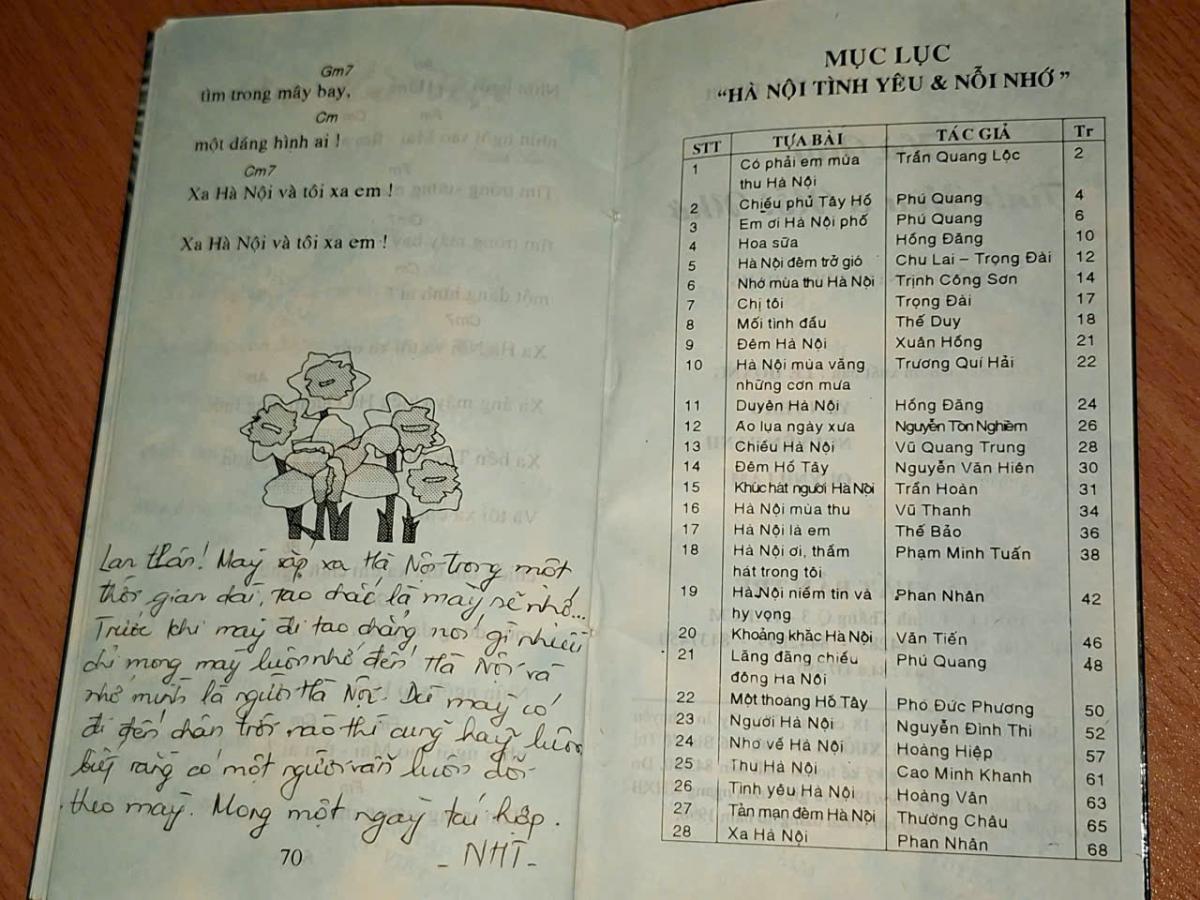 Gm7
tìm trong mây bay,
Cm
một dáng hình ai !
Cm7
Xa Hà Nội và tôi xa em !
Xa Hà Nội và tôi xa em !
Lan thân! Mày sắp xa Hà Nội trong một
thời gian dài, tao chắc là mày sẽ nhớ...
Trước khi mày đi tao chẳng nói gì nhiều
chỉ mong mày luôn nhớ đến Hà Nội và
nhớ mình là người Hà Nội. Dù mày có
đi đến chân trời nào thì cũng hãy luôn
biết rằng có một người vẫn luôn dõi
theo mày. Mong một ngày tái hợp.
- NHI -
70
MỤC LỤC
“HÀ NỘI TÌNH YÊU & NỖI NHỚ”
STT TỰA BÀI TÁC GIẢ Tr
1 Có phải em mùa Trần Quang Lộc 2
thu Hà Nội
2 Chiều phủ Tây Hồ Phú Quang 4
3 Em ơi Hà Nội phố Phú Quang 6
4 Hoa sữa Hồng Đăng 10
5 Hà Nội đêm trở gió Chu Lai – Trọng Đài 12
6 Nhớ mùa thu Hà Nội Trịnh Công Sơn 14
7 Chị tôi Trọng Đài 17
8 Mối tình đầu Thế Duy 18
9 Đêm Hà Nội Xuân Hồng 21
10 Hà Nội mùa vắng Trương Quí Hải 22
những cơn mưa
11 Duyên Hà Nội Hồng Đăng 24
12 Áo lụa ngày xưa Nguyễn Tôn Nghiêm 26
13 Chiều Hà Nội Vũ Quang Trung 28
14 Đêm Hồ Tây Nguyễn Văn Hiên 30
15 Khúc hát người Hà Nội Trần Hoàn 31
16 Hà Nội mùa thu Vũ Thanh 34
17 Hà Nội là em Thế Bảo 36
18 Hà Nội ơi, thầm Phạm Minh Tuấn 38
hát trong tôi
19 Hà Nội niềm tin và Phan Nhân 42
hy vọng
20 Khoảng khắc Hà Nội Văn Tiến 46
21 Lãng đãng chiều Phú Quang 48
đông Hà Nội
22 Một thoáng Hồ Tây Phó Đức Phương 50
23 Người Hà Nội Nguyễn Đình Thi 52
24 Nhớ về Hà Nội Hoàng Hiệp 57
25 Thu Hà Nội Cao Minh Khanh 61
26 Tình yêu Hà Nội Hoàng Vân 63
27 Tản mạn đêm Hà Nội Thường Châu 65
28 Xa Hà Nội Phan Nhân 68